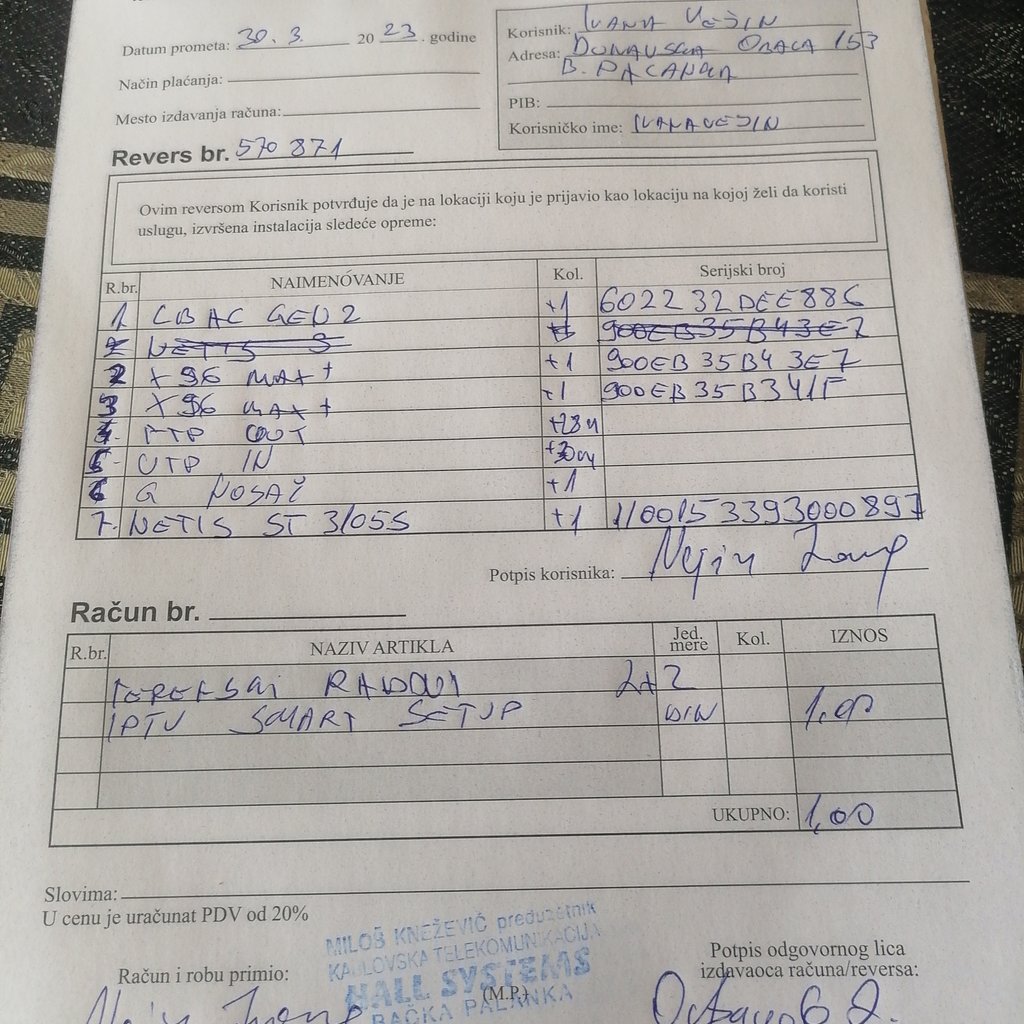 Datum prometa: 30. 3. 20 23. godine
Način plaćanja:
Mesto izdavanja računa:
Korisnik: IVANA VEJIN
Adresa: DUNAVSKA OBALA 153
B. PALANKA
PIB:
Korisničko ime: IVANAVEJIN
Revers br. 570 871
Ovim reversom Korisnik potvrđuje da je na lokaciji koju je prijavio kao lokaciju na kojoj želi da koristi
uslugu, izvršena instalacija sledeće opreme:
R.br. NAIMENÓVANJE Kol. Serijski broj
1 LBAC GEN2 +1 602232DEE886
2 NETIS 900EB35B43E7
2 X96 MAX+ +1 900EB35B43E7
3 X96 MAX+ +1 900EB35B341F
4. FTP OUT +28m
5. UTP IN +30m
6 G NOSAČ +1
7. NETIS ST3105S +1 1100153393000897
Potpis korisnika: Vejin
Račun br.
R.br. NAZIV ARTIKLA Jed. mere Kol. IZNOS
TERENSKI RADOVI 2x2
IPTV SMART SETUP DIN 1,00
UKUPNO: 1,00
Slovima:
U cenu je uračunat PDV od 20%
MILOŠ KNEŽEVIĆ preduzetnik
KARLOVSKA TELEKOMUNIKACIJA
HALL SYSTEMS
BAČKA PALANKA
(M.P.)
Račun i robu primio:
Potpis odgovornog lica
izdavaoca računa/reversa: